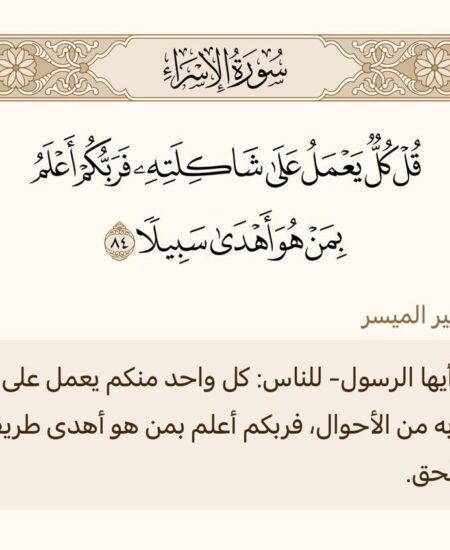 سُورَةُ الإِسْرَاءِ
قُلْ كُلٌّ يَعْمَلُ عَلَىٰ شَاكِلَتِهِۦ فَرَبُّكُمْ أَعْلَمُ
بِمَنْ هُوَ أَهْدَىٰ سَبِيلًا ٨٤
الميسر
أيها الرسول- للناس: كل واحد منكم يعمل على
من الأحوال، فربكم أعلم بمن هو أهدى